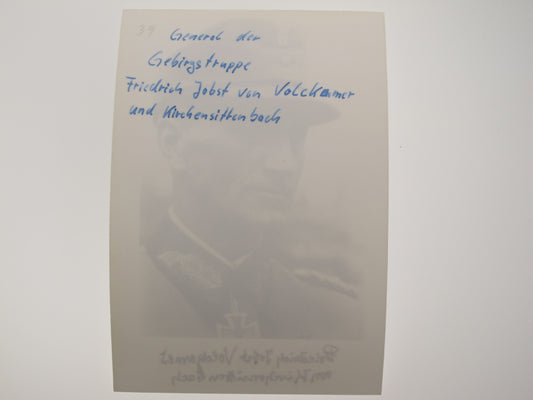 39
General der
Gebirgstruppe
Friedrich Jobst von Volckamer
und Kirchensittenbach
Friedrich Jobst Volckamer
von Kirchensittenbach